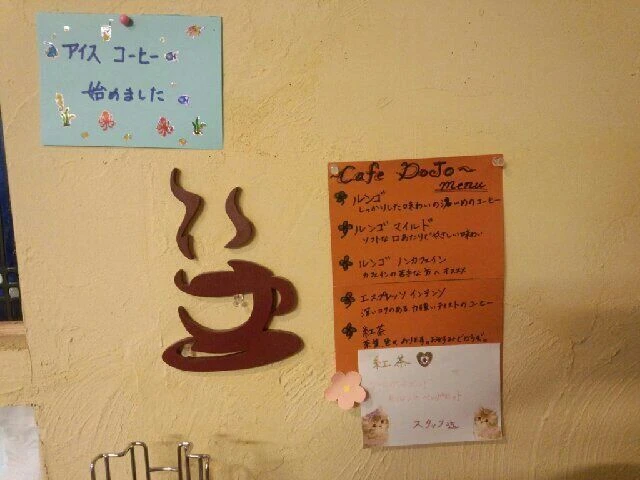 アイス コーヒー
始めました
~Cafe DoJo~
menu
ルンゴ
しっかりした味わいの濃いめのコーヒー
ルンゴ マイルド
ソフトな口あたりでやさしい味わい
ルンゴ ノンカフェイン
カフェインの苦手な方へオススメ
エスプレッソ インテンソ
深いコクのある力強いテイストのコーヒー
紅茶
紅茶
スタッフ